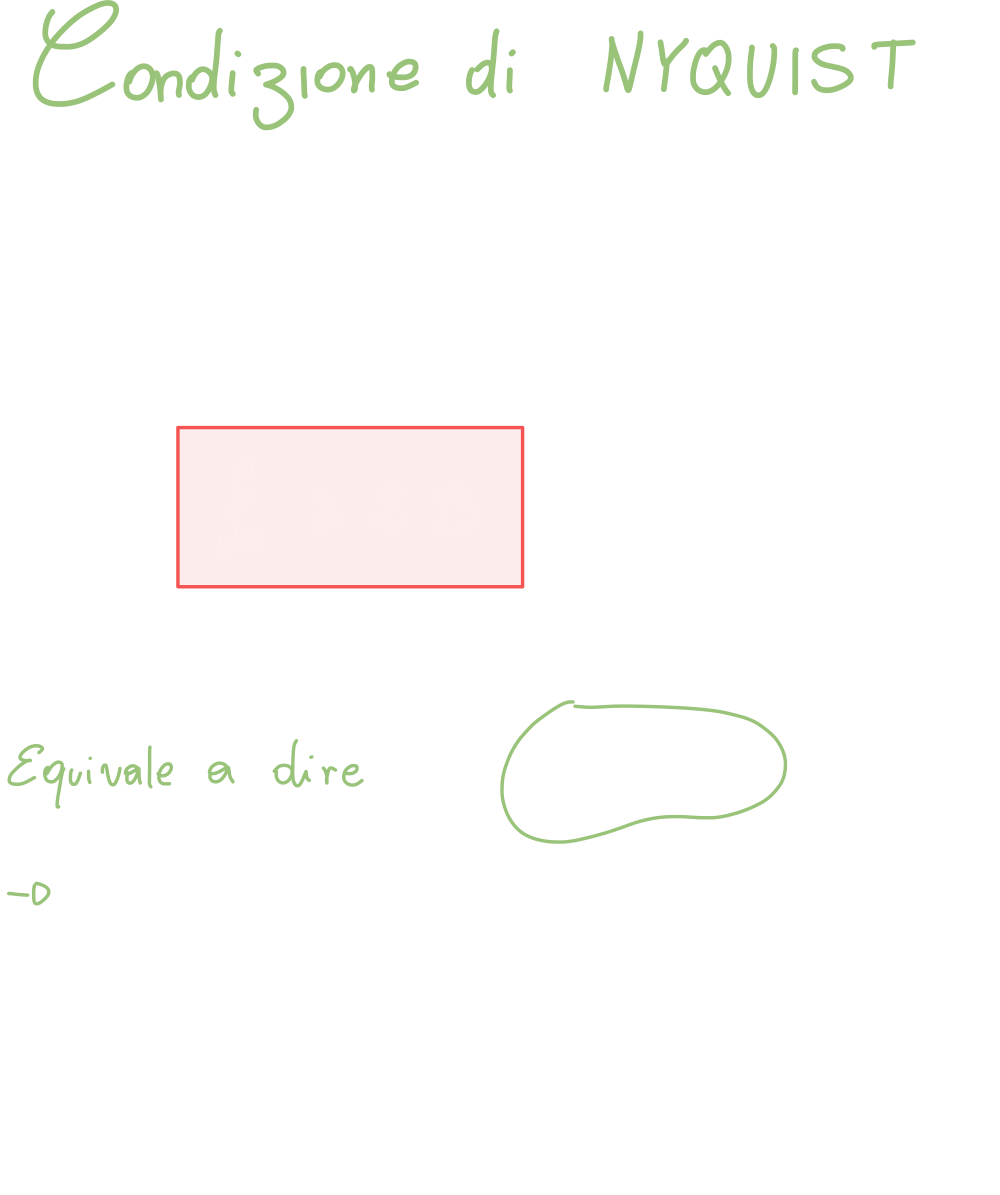 Condizione di NYQUIST
Equivale a dire